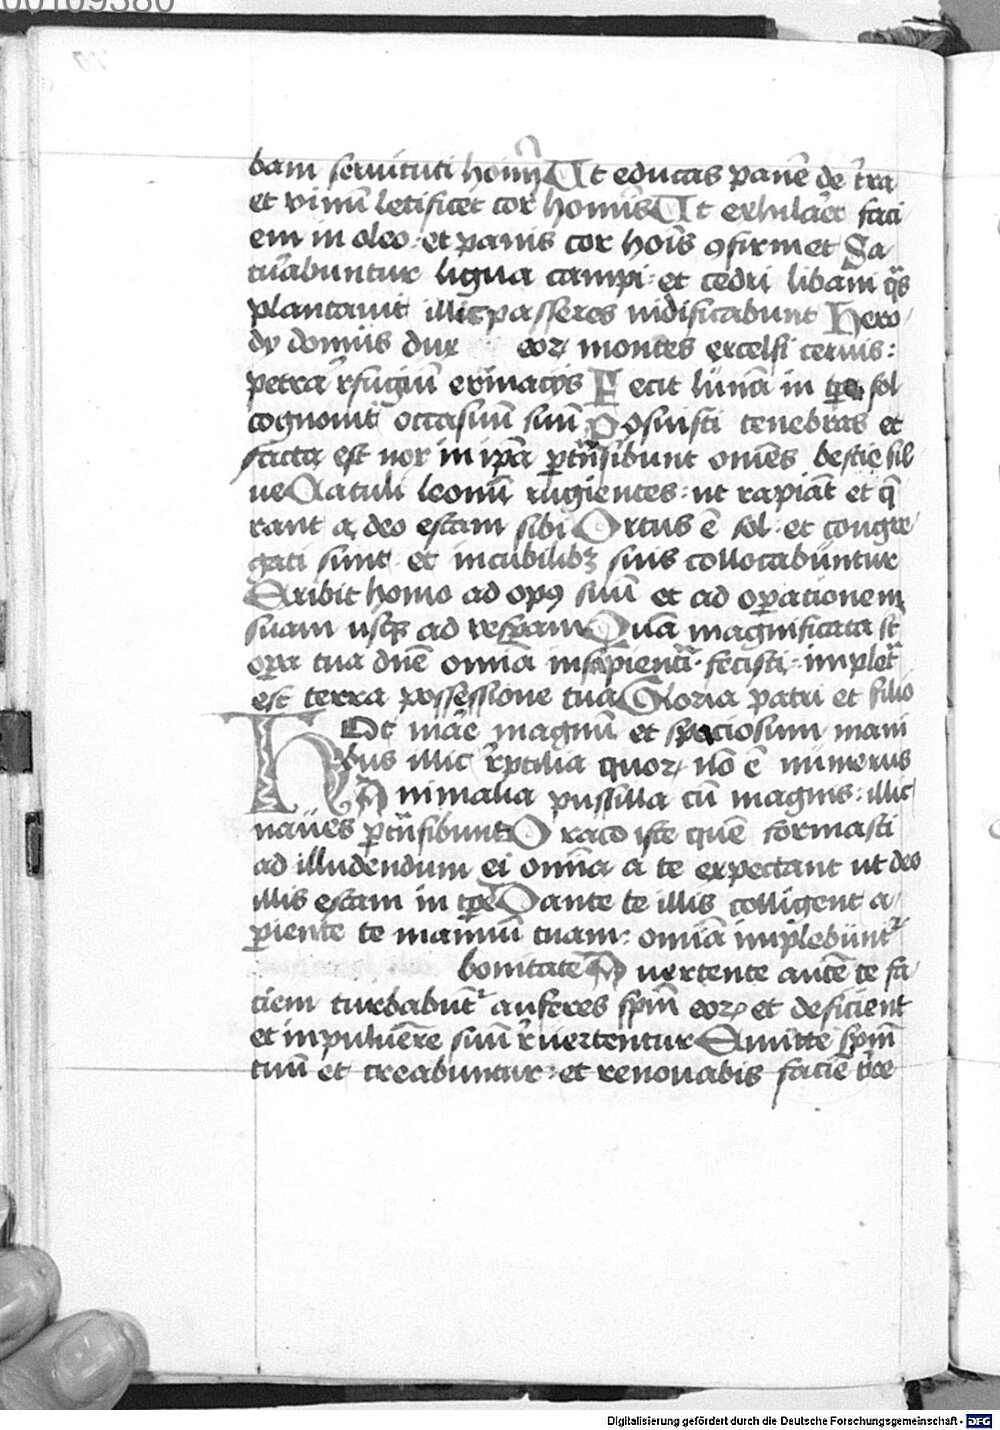 00109380
bam seruituti homĩ Ut educas panē de t̃ra
et vinū letificet cor hominis Ut exhilaret faci
em in oleo · et panis cor hoĩs ꝯfirmet Sa
tur̃abuntur ligna campi · et cedri libani q̃s
plantauit illic passeres nidificabunt Hero
dy domus dux eoꝝ montes excelsi ceruis :
petra r̃fugiū erinacijs Fecit lunā in tp̃a sol
cognouit occasum suū Posuisti tenebras et
facta est nox in ip̃a ꝑtr̃nsibunt omēs bestie sil
ue Catuli leonū rugientes · ut rapiāt et q̃
rant a deo escam sibi Ortus ē sol · et congre
gati sunt · et in cubilibꝫ suis collocabuntur
Exibit homo ad opꝰ suū et ad oꝑationem
suam usqꝫ ad vesꝑam Quā magnificata st̄
oꝑa tua dn̄e omnia in sapientia · fecisti · impleta
est terra possessione tua Gloria patri et filio
Hoc mare magnū et spaciosum mani
bus illic r̃ptilia quoꝝ nō ē numerus
Animalia pussilla cū magnis : illic
naues ꝑtr̃nsibunt Draco iste quē formasti
ad illudendum ei omnia a te expectant ut des
illis escam in tp̃e Dante te illis colligent a
ꝑiente te manum tuam · omnia implebuntᷣ
bonitate Auertente autē te fa
ciem turbabuntᷣ auferes spm̄ eoꝝ et deficient
et in puluerē suū r̃uertentur Emitte spm̄
tuū et creabuntur · et renouabis faciē t̃re
Digitalisierung gefördert durch die Deutsche Forschungsgemeinschaft - DFG